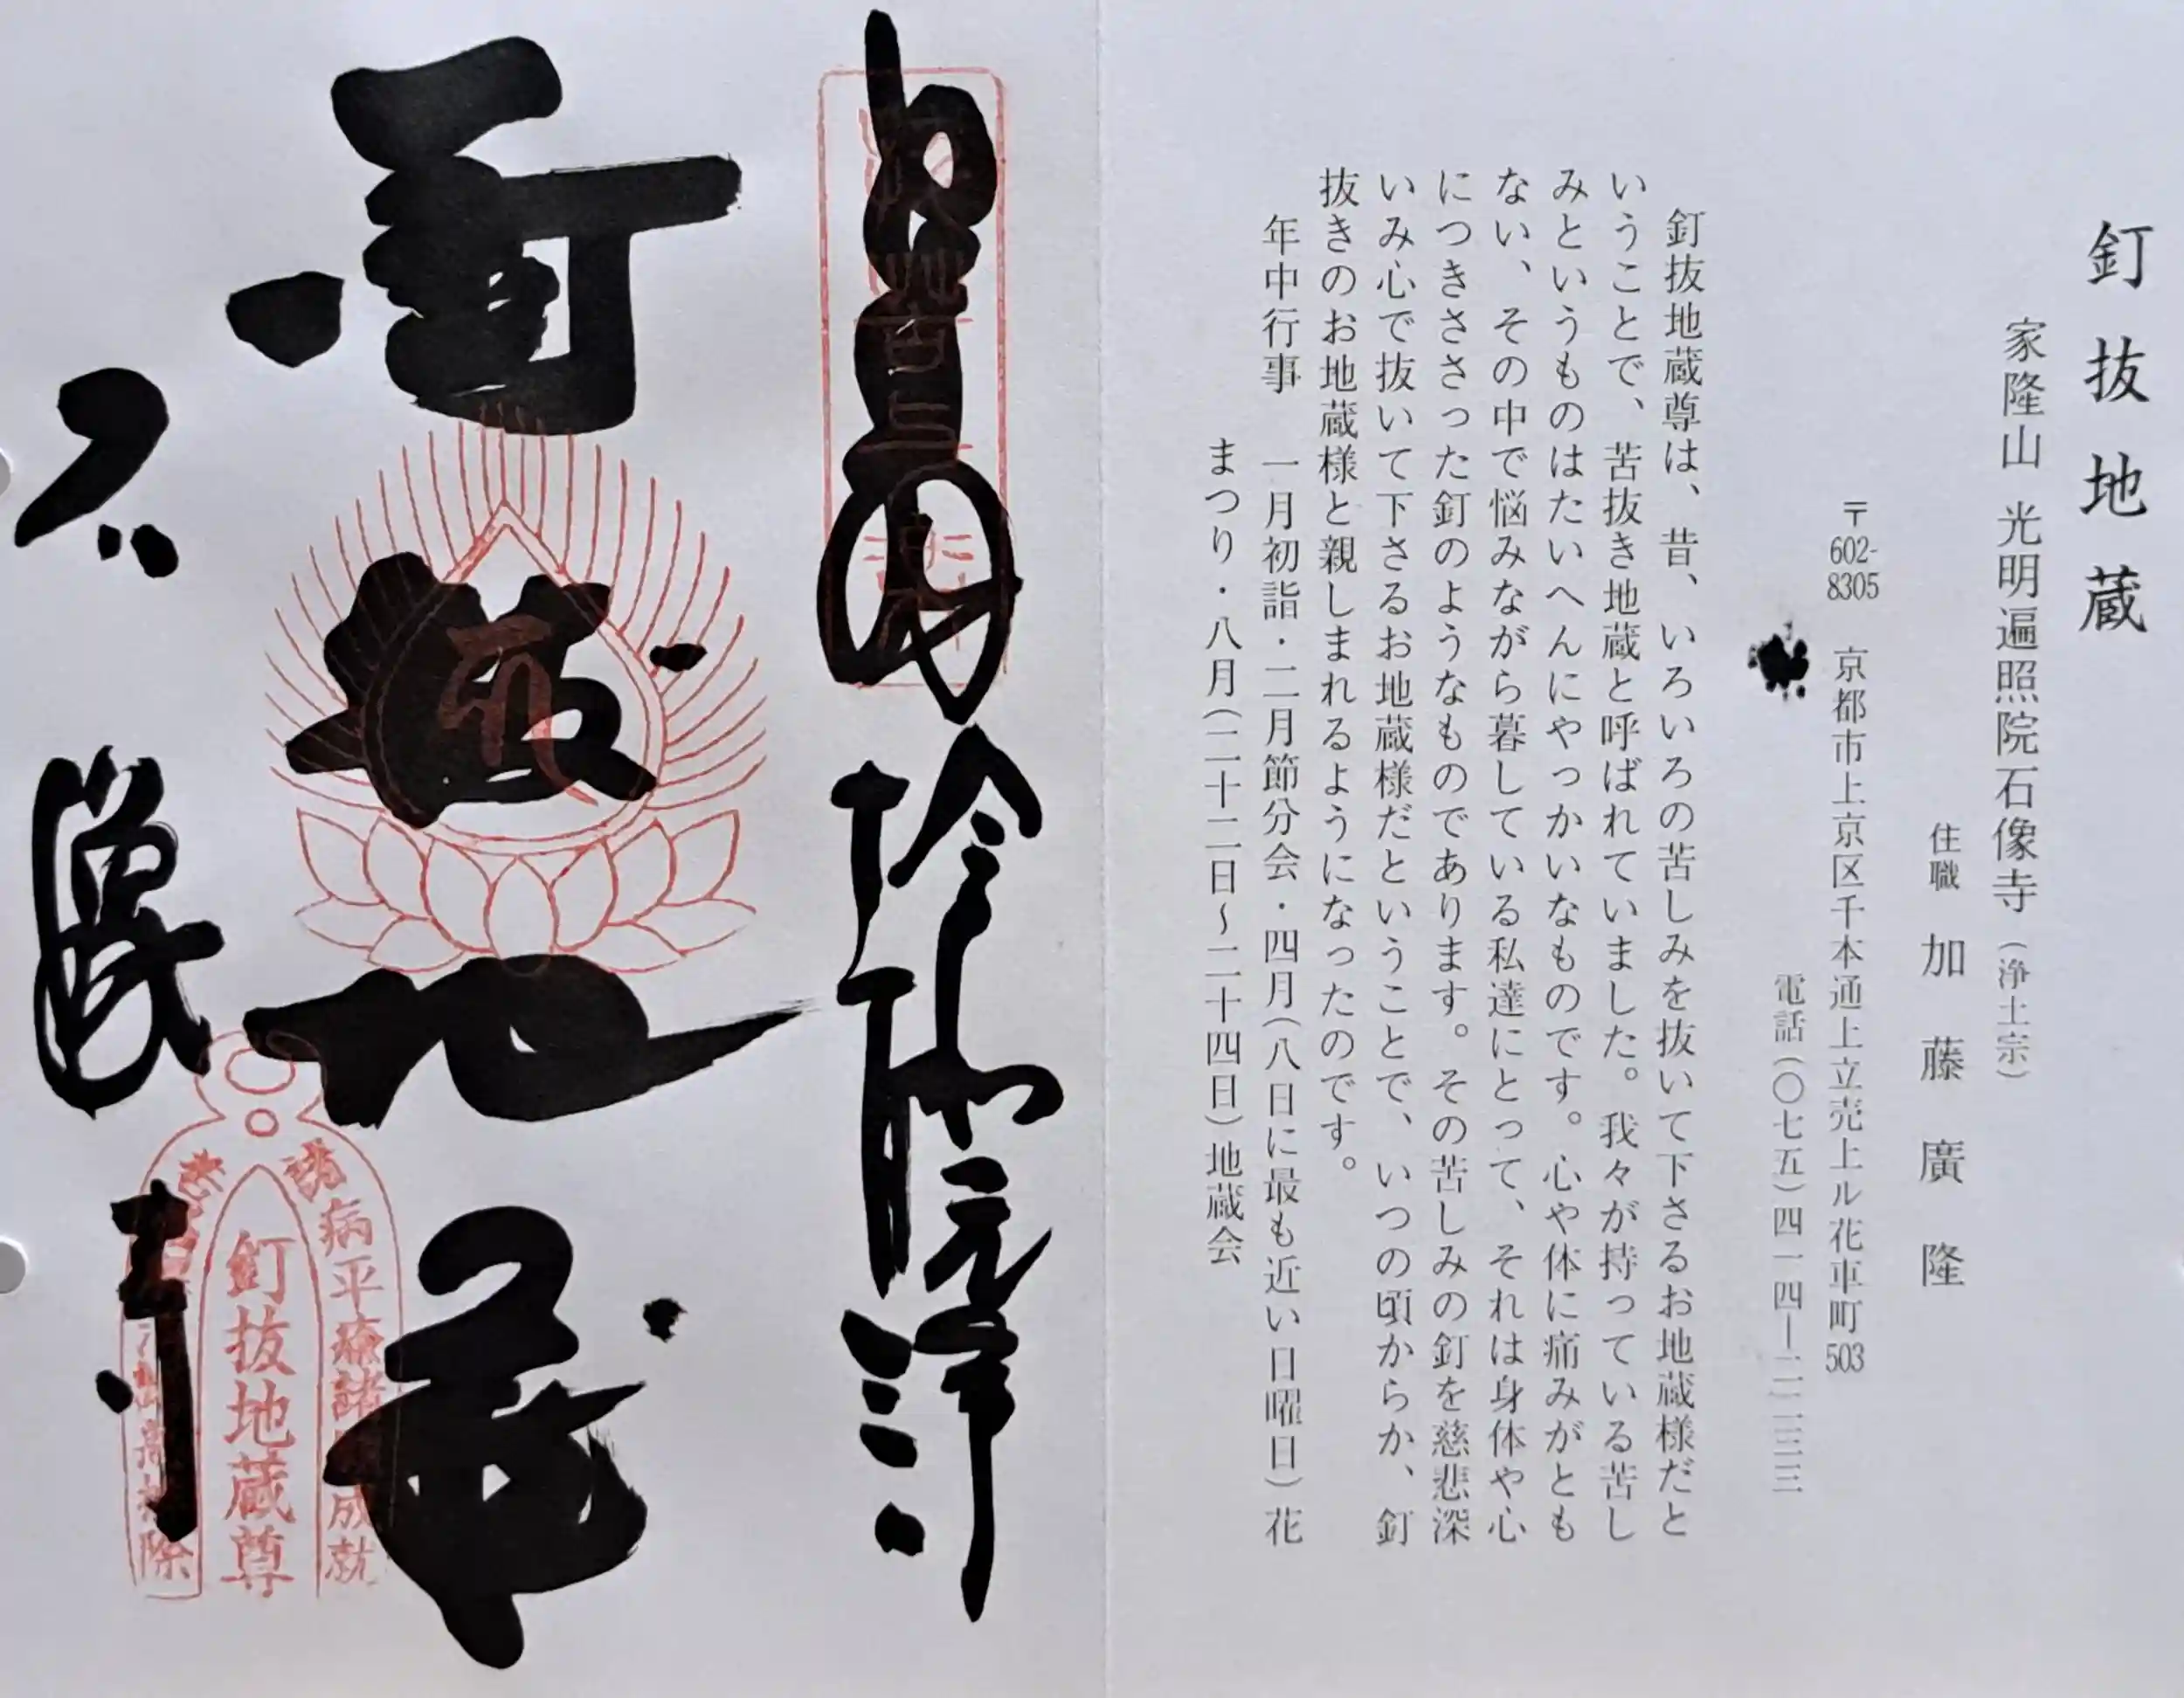 釘抜地蔵
家隆山 光明遍照院石像寺(浄土宗)
住職 加藤廣隆
〒602-8305 京都市上京区千本通上立売上ル花車町503
電話(〇七五)四一四―二二三三
釘抜地蔵尊は、昔、いろいろの苦しみを抜いて下さるお地蔵様だと
いうことで、苦抜き地蔵と呼ばれていました。我々が持っている苦し
みというものはたいへんにやっかいなものです。心や体に痛みがとも
ない、その中で悩みながら暮している私達にとって、それは身体や心
につきささった釘のようなものであります。その苦しみの釘を慈悲深
いみ心で抜いて下さるお地蔵様だということで、いつの頃からか、釘
抜きのお地蔵様と親しまれるようになったのです。
年中行事 一月初詣・二月節分会・四月(八日に最も近い日曜日)花
まつり・八月(二十二日～二十四日)地蔵会
釘抜地蔵
石像寺
諸病平癒諸願成就
釘抜地蔵尊